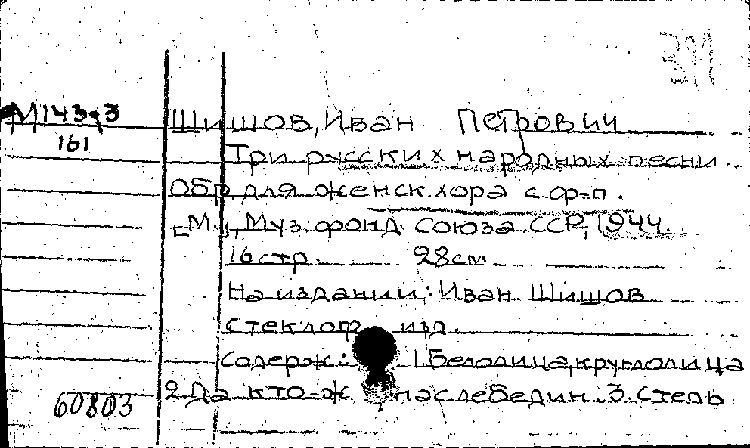 311
М143-3
161
Шишов, Иван Петрович
Три русских народных песни.
Обр для женск. хора с ф-п.
[М], Муз. фонд Союза ССР, 1944
16 стр. 28 см
На издании: Иван Шишов
Стеклогр. изд.
Содерж: 1 Белолица, круглолица
2. Да кто ж 3. Степь
60803